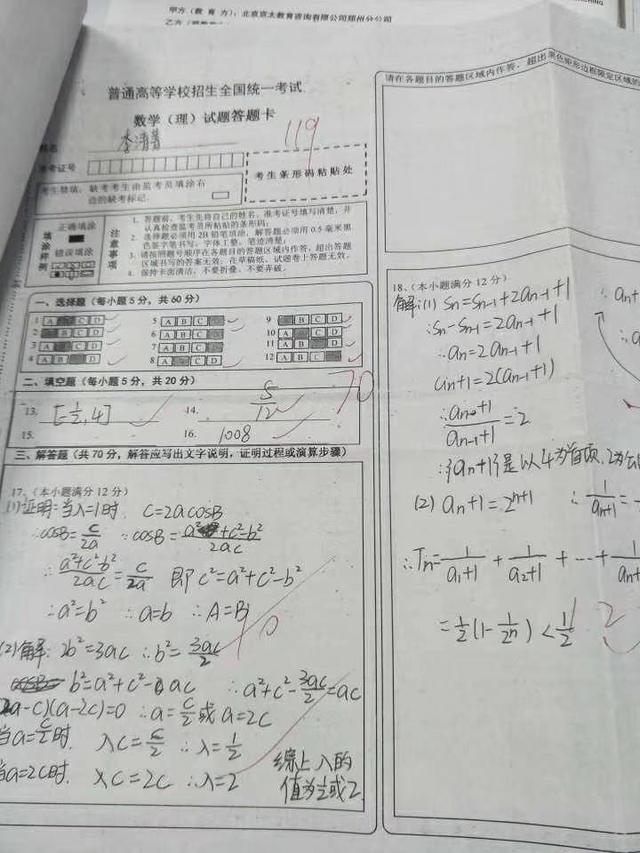 甲方（教 育 方）：北京京太教育咨询有限公司郑州分公司
普通高等学校招生全国统一考试
数学（理）试题答题卡
119
准考证号
考生条形码粘贴处
考生禁填：缺考考生由监考员填涂右
边的缺考标记．
填涂样例
正确填涂
错误填涂
注意事项
1．答题前，考生先将自己的姓名、准考证号填写清楚，并
认真检查监考员所粘贴的条形码。
2．选择题必须用2B铅笔填涂，解答题必须用0.5毫米黑
色签字笔书写，字体工整，笔迹清楚；
3．请按照题号顺序在各题目的答题区域内作答，超出答题
区域书写的答案无效，在草稿纸、试题卷上答题无效。
4．保持卡面清洁，不要折叠、不要弄破。
一、选择题（每小题5分，共60分）
二、填空题（每小题5分，共20分）
70
13. [-1/2,4]
14. 5/12
15.
16. 1008
三、解答题（共70分，解答应写出文字说明，证明过程或演算步骤）
17.（本小题满分12分）
(1)证明：当λ=1时. c=2acosB
∴cosB=c/2a ∵cosB=(a²+c²-b²)/2ac
∴(a²+c²-b²)/2ac=c/2a 即c²=a²+c²-b²
∴a²=b² ∴a=b ∴A=B
10
(2)解：2b²=3ac ∴b²=3ac/2
b²=a²+c²-ac ∴a²+c²-3ac/2=ac
(2a-c)(a-2c)=0 ∴a=c/2或a=2c
当a=c/2时. λc=c/2 ∴λ=1/2
当a=2c时. λc=2c ∴λ=2
综上λ的
值为1/2或2.
请在各题目的答题区域内作答，超出黑色矩形边框限定区域的
18、（本小题满分12分）
解：(1) Sn=Sn-1+2an-1+1
∴Sn-Sn-1=2an-1+1
∴an=2an-1+1
an+1=2(an-1+1)
∴(an+1)/(an-1+1)=2
∴{an+1}是以4为首项.2为
(2) an+1=2ⁿ⁺¹ ∴1/(an+1)=
∴Tn=1/(a1+1)+1/(a2+1)+…+1/(an+
=1/2(1-1/2ⁿ)<1/2
2